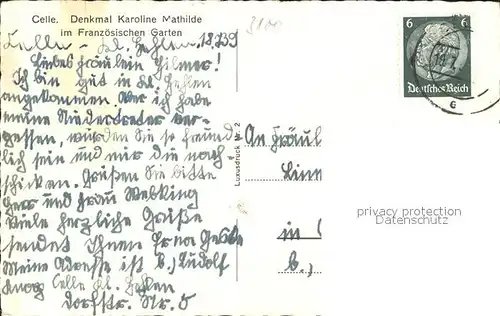 Celle. Denkmal Karoline Mathilde
im Französischen Garten
Celle - Kl. Hehlen 18.7.39
Liebes Fräulein Gilmer!
Ich bin gut in Kl. Hehlen
angekommen. Aber ich habe
meine Niedertreter ver-
gessen, würden Sie so freund
lich sein und mir die nach
schicken. Grüßen Sie bitte
Herr und Frau Webking
Viele herzliche Grüße
sendet Ihnen Erna
Meine Adresse ist b., Rudolf
Knoop Celle Kl. Hehlen
Dorfstr. Nr. 5
Luxusdruck Nr. 2
An Fräul
in
b.,
6 6
Deutsches Reich
privacy protection
Datenschutz